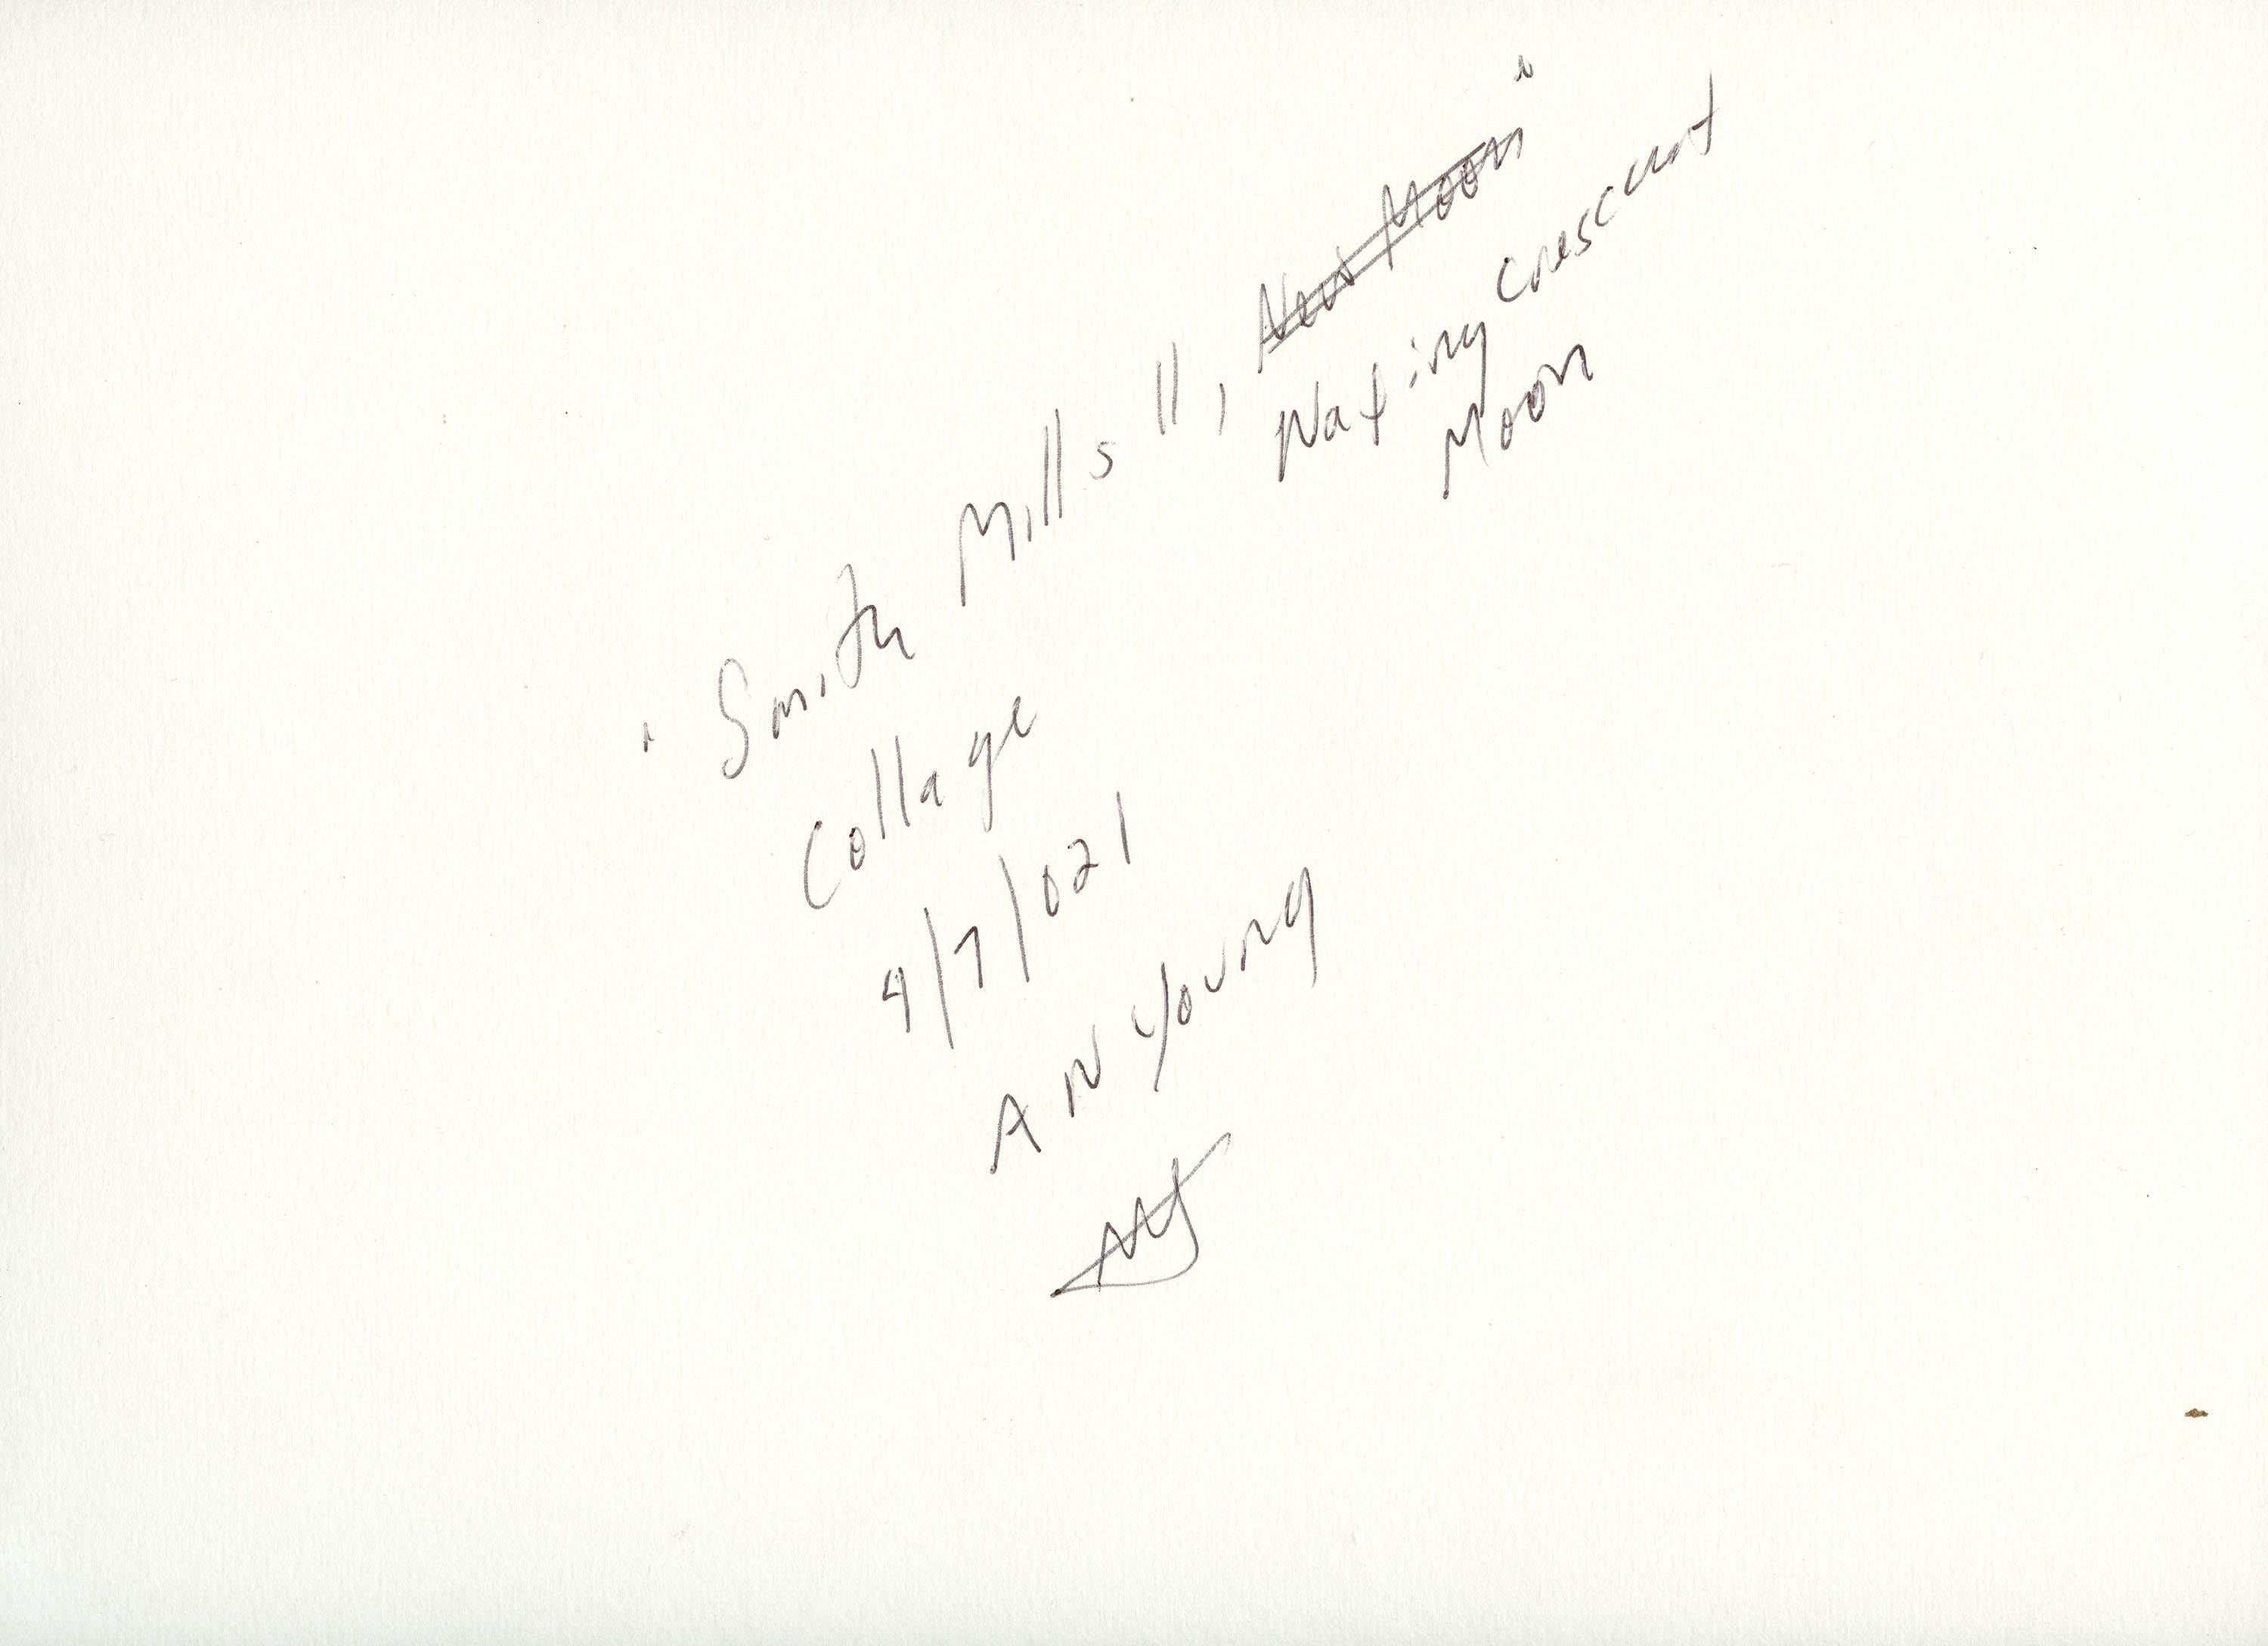 "Smith Mills II, New Moon"
Waxing Crescent
Moon
Collage
9/7/021
AN Young